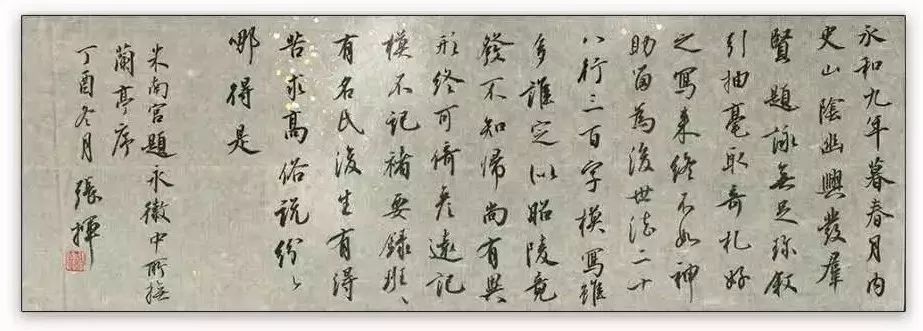 永和九年暮春月内
史山陰幽興發群
賢題詠無足珍叙
引抽毫取奇札好
之寫來終不如神
助留為後世法二十
八行三百字模寫雖
多誰定似昭陵竟
發不知歸尚有典
形終可倚彥遠記
模不記褚要錄班〻
有名氏後生有得
苦求高俗說紛〻
哪得是
米南宮題永徽中所撫
蘭亭序
丁酉冬月 張揮